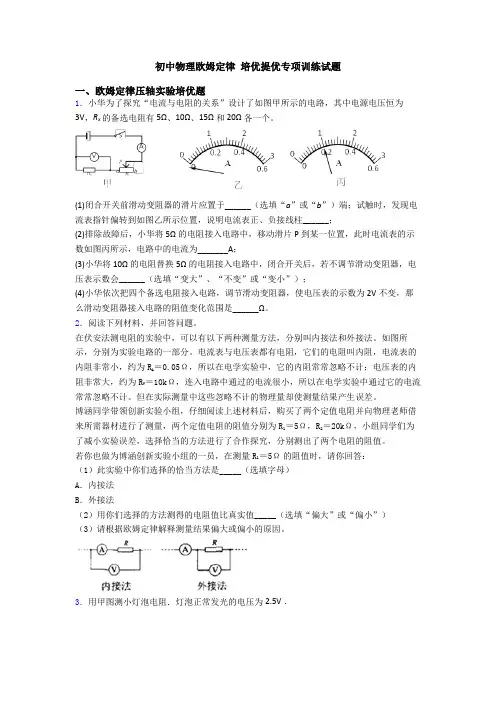 初中物理欧姆定律 培优提优专项训练试题
一、欧姆定律压轴实验培优题
1．小华为了探究“电流与电阻的关系”设计了如图甲所示的电路，其中电源电压恒为
3V，Rx 的备选电阻有 5Ω、10Ω、15Ω 和 20Ω 各一个。
S
A
V
P
a
b
甲
0 1 2 3
0 0.2 0.4 0.6
A
乙
0 1 2 3
0 0.2 0.4 0.6
A
丙
(1)闭合开关前滑动变阻器的滑片应置于______（选填“a”或“b”）端；试触时，发现电
流表指针偏转到如图乙所示位置，说明电流表正、负接线柱______；
(2)排除故障后，小华将 5Ω 的电阻接入电路中，移动滑片 P 到某一位置，此时电流表的示
数如图丙所示，电路中的电流为_______A；
(3)小华将 10Ω 的电阻替换 5Ω 的电阻接入电路中，闭合开关后，若不调节滑动变阻器，电
压表示数会______（选填“变大”、“不变”或“变小”）；
(4)小华依次把四个备选电阻接入电路，调节滑动变阻器，使电压表的示数为 2V 不变，那
么滑动变阻器接入电路的阻值变化范围是______Ω。
2．阅读下列材料，并回答问题。
在伏安法测电阻的实验中，可以有以下两种测量方法，分别叫内接法和外接法。如图所
示，分别为实验电路的一部分。电流表与电压表都有电阻，它们的电阻叫内阻，电流表的
内阻非常小，约为 Rₐ＝0.05Ω，所以在电学实验中，它的内阻常常忽略不计；电压表的内
阻非常大，约为 Rᵥ＝10kΩ，连入电路中通过的电流很小，所以在电学实验中通过它的电流
常常忽略不计。但在实际测量中这些忽略不计的物理量却使测量结果产生误差。
博涵同学带领创新实验小组，仔细阅读上述材料后，购买了两个定值电阻并向物理老师借
来所需器材进行了测量，两个定值电阻的阻值分别为 R₁＝5Ω，R₂＝20kΩ，小组同学们为
了减小实验误差，选择恰当的方法进行了合作探究，分别测出了两个电阻的阻值。
若你也做为博涵创新实验小组的一员，在测量 R₁＝5Ω 的阻值时，请你回答：
（1）此实验中你们选择的恰当方法是_____（选填字母）
A．内接法
B．外接法
（2）用你们选择的方法测得的电阻值比真实值_____（选填“偏大”或“偏小”）
（3）请根据欧姆定律解释测量结果偏大或偏小的原因。
A R
V
内接法
A R
V
外接法
3．用甲图测小灯泡电阻．灯泡正常发光的电压为 2.5V．